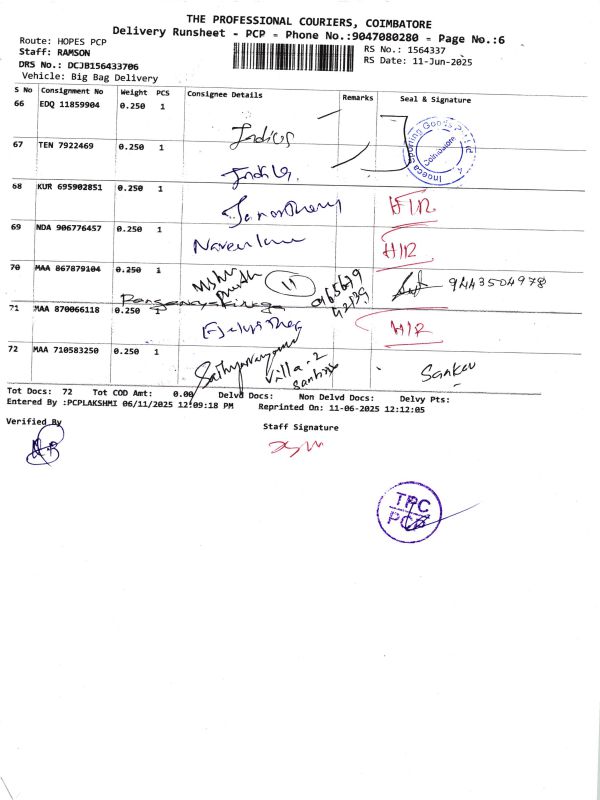 THE PROFESSIONAL COURIERS, COIMBATORE
Delivery Runsheet - PCP - Phone No.:9047080280 - Page No.:6
Route: HOPES PCP
RS No.: 1564337
Staff: RAMSON
RS Date: 11-Jun-2025
DRS No.: DCJB156433706
Vehicle: Big Bag Delivery
S No Consignment No Weight PCS Consignee Details Remarks Seal & Signature
66 EDQ 11859904 0.250 1
67 TEN 7922469 0.250 1
68 KUR 695902851 0.250 1 H/R
69 NDA 906776457 0.250 1 H/R
70 MAA 867879104 0.250 1 11 9443504978
71 MAA 870066118 0.250 1 H/R
72 MAA 710583250 0.250 1 Villa-2
Tot Docs: 72 Tot COD Amt: 0.00 Delvd Docs: Non Delvd Docs: Delvy Pts:
Entered By :PCPLAKSHMI 06/11/2025 12:09:18 PM Reprinted On: 11-06-2025 12:12:05
Verified By
Staff Signature
TPC
PCP